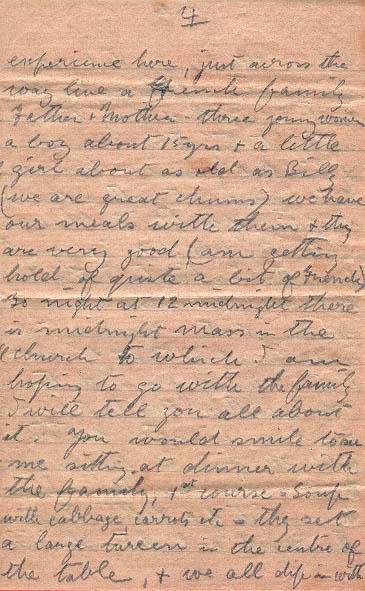 4
experience here, just across the
way live a French family
Father + Mother - three young women
a boy about 15 yrs + a little
girl about as old as Bill
(we are great chums) we have
our meals with them + they
are very good (am getting
hold of quite a bit of French)
To night at 12 midnight there
is midnight mass in the
church to which I am
hoping to go with the family
I will tell you all about
it. You would smile to see
me sitting at dinner with
the family, 1st course - Soup
with cabbage, carrots etc - they set
a large tureen in the centre of
the table, + we all dip in with